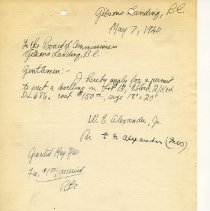 Gibsons Landing, B.C.
May 7, 1940
To the Board of Commissioners
Gibsons Landing, B.C.
Gentlemen: - I hereby apply for a permit
to erect a dwelling on Lot 18, Block 2, W. of
DL 686, cost $150.00, size 18' x 20'
W. E. Alexander, Jr.
Per E. M. Alexander (Mrs)
Granted May 7/40
Fee $1.00 received